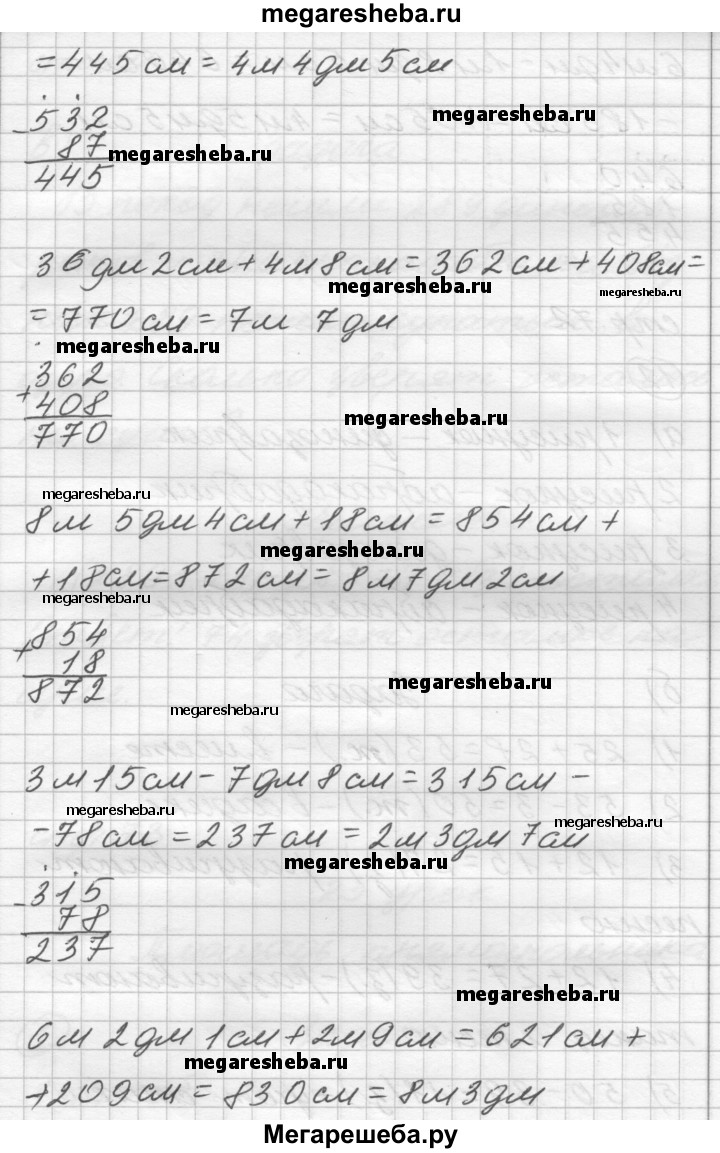 megaresheba.ru
= 445 см = 4м 4дм 5см
megaresheba.ru
- 532
87 megaresheba.ru
445
36дм 2см + 4м 8см = 362см + 408см =
megaresheba.ru megaresheba.ru
= 770 см = 7м 7дм
megaresheba.ru
+ 362
408
megaresheba.ru
770
megaresheba.ru
8м 5дм 4см + 18см = 854см +
megaresheba.ru
+ 18см = 872см = 8м 7дм 2см
megaresheba.ru
+ 854
18
megaresheba.ru
872
megaresheba.ru
3м 15см - 7дм 8см = 315см -
megaresheba.ru
megaresheba.ru
- 78см = 237см = 2м 3дм 7см
megaresheba.ru
- 315
78
237
megaresheba.ru
6м 2дм 1см + 2м 9см = 621см +
megaresheba.ru
+ 209см = 830см = 8м 3дм
Мегарешеба.ру